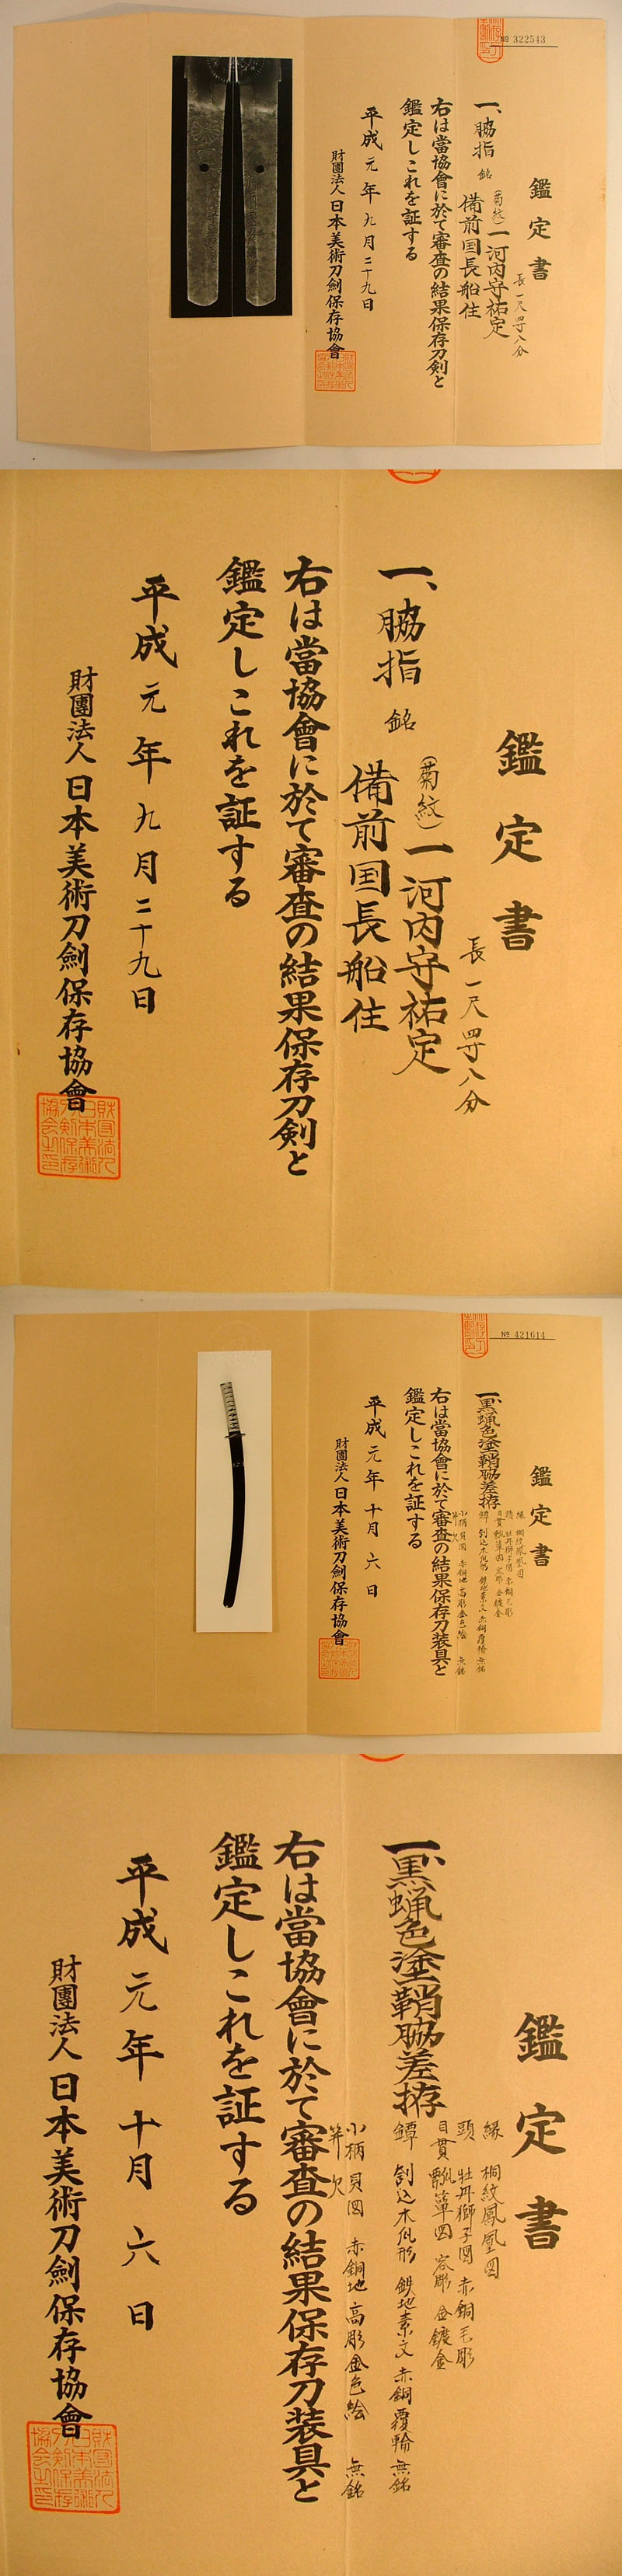 № 322543
鑑定書
長一尺四寸八分
一、脇指 銘 (菊紋)一河内守祐定
備前国長船住
右は當協會に於て審査の結果保存刀剣と
鑑定しこれを証する
平成元年九月二十九日
財團法人日本美術刀劍保存協會
鑑定書
長一尺四寸八分
一、脇指 銘 (菊紋)一河内守祐定
備前国長船住
右は當協會に於て審査の結果保存刀剣と
鑑定しこれを証する
平成元年九月二十九日
財團法人日本美術刀劍保存協會
№ 421614
鑑定書
一、黒蝋色塗鞘脇差拵
縁 桐紋鳳凰図
頭 牡丹獅子図 赤銅毛彫
目貫 瓢箪図 容彫 金鍍金
鐔 切込木瓜形 鉄地素文 赤銅覆輪 無銘
小柄 貝図 赤銅地 高彫金色絵 無銘
笄欠
右は當協會に於て審査の結果保存刀装具と
鑑定しこれを証する
平成元年十月六日
財團法人日本美術刀劍保存協會
鑑定書
縁 桐紋鳳凰図
頭 牡丹獅子図 赤銅毛彫
目貫 瓢箪図 容彫 金鍍金
一、黒蝋色塗鞘脇差拵
鐔 切込木瓜形 鉄地素文 赤銅覆輪 無銘
小柄 貝図 赤銅地 高彫金色絵 無銘
笄欠
右は當協會に於て審査の結果保存刀装具と
鑑定しこれを証する
平成元年十月六日
財團法人日本美術刀劍保存協會